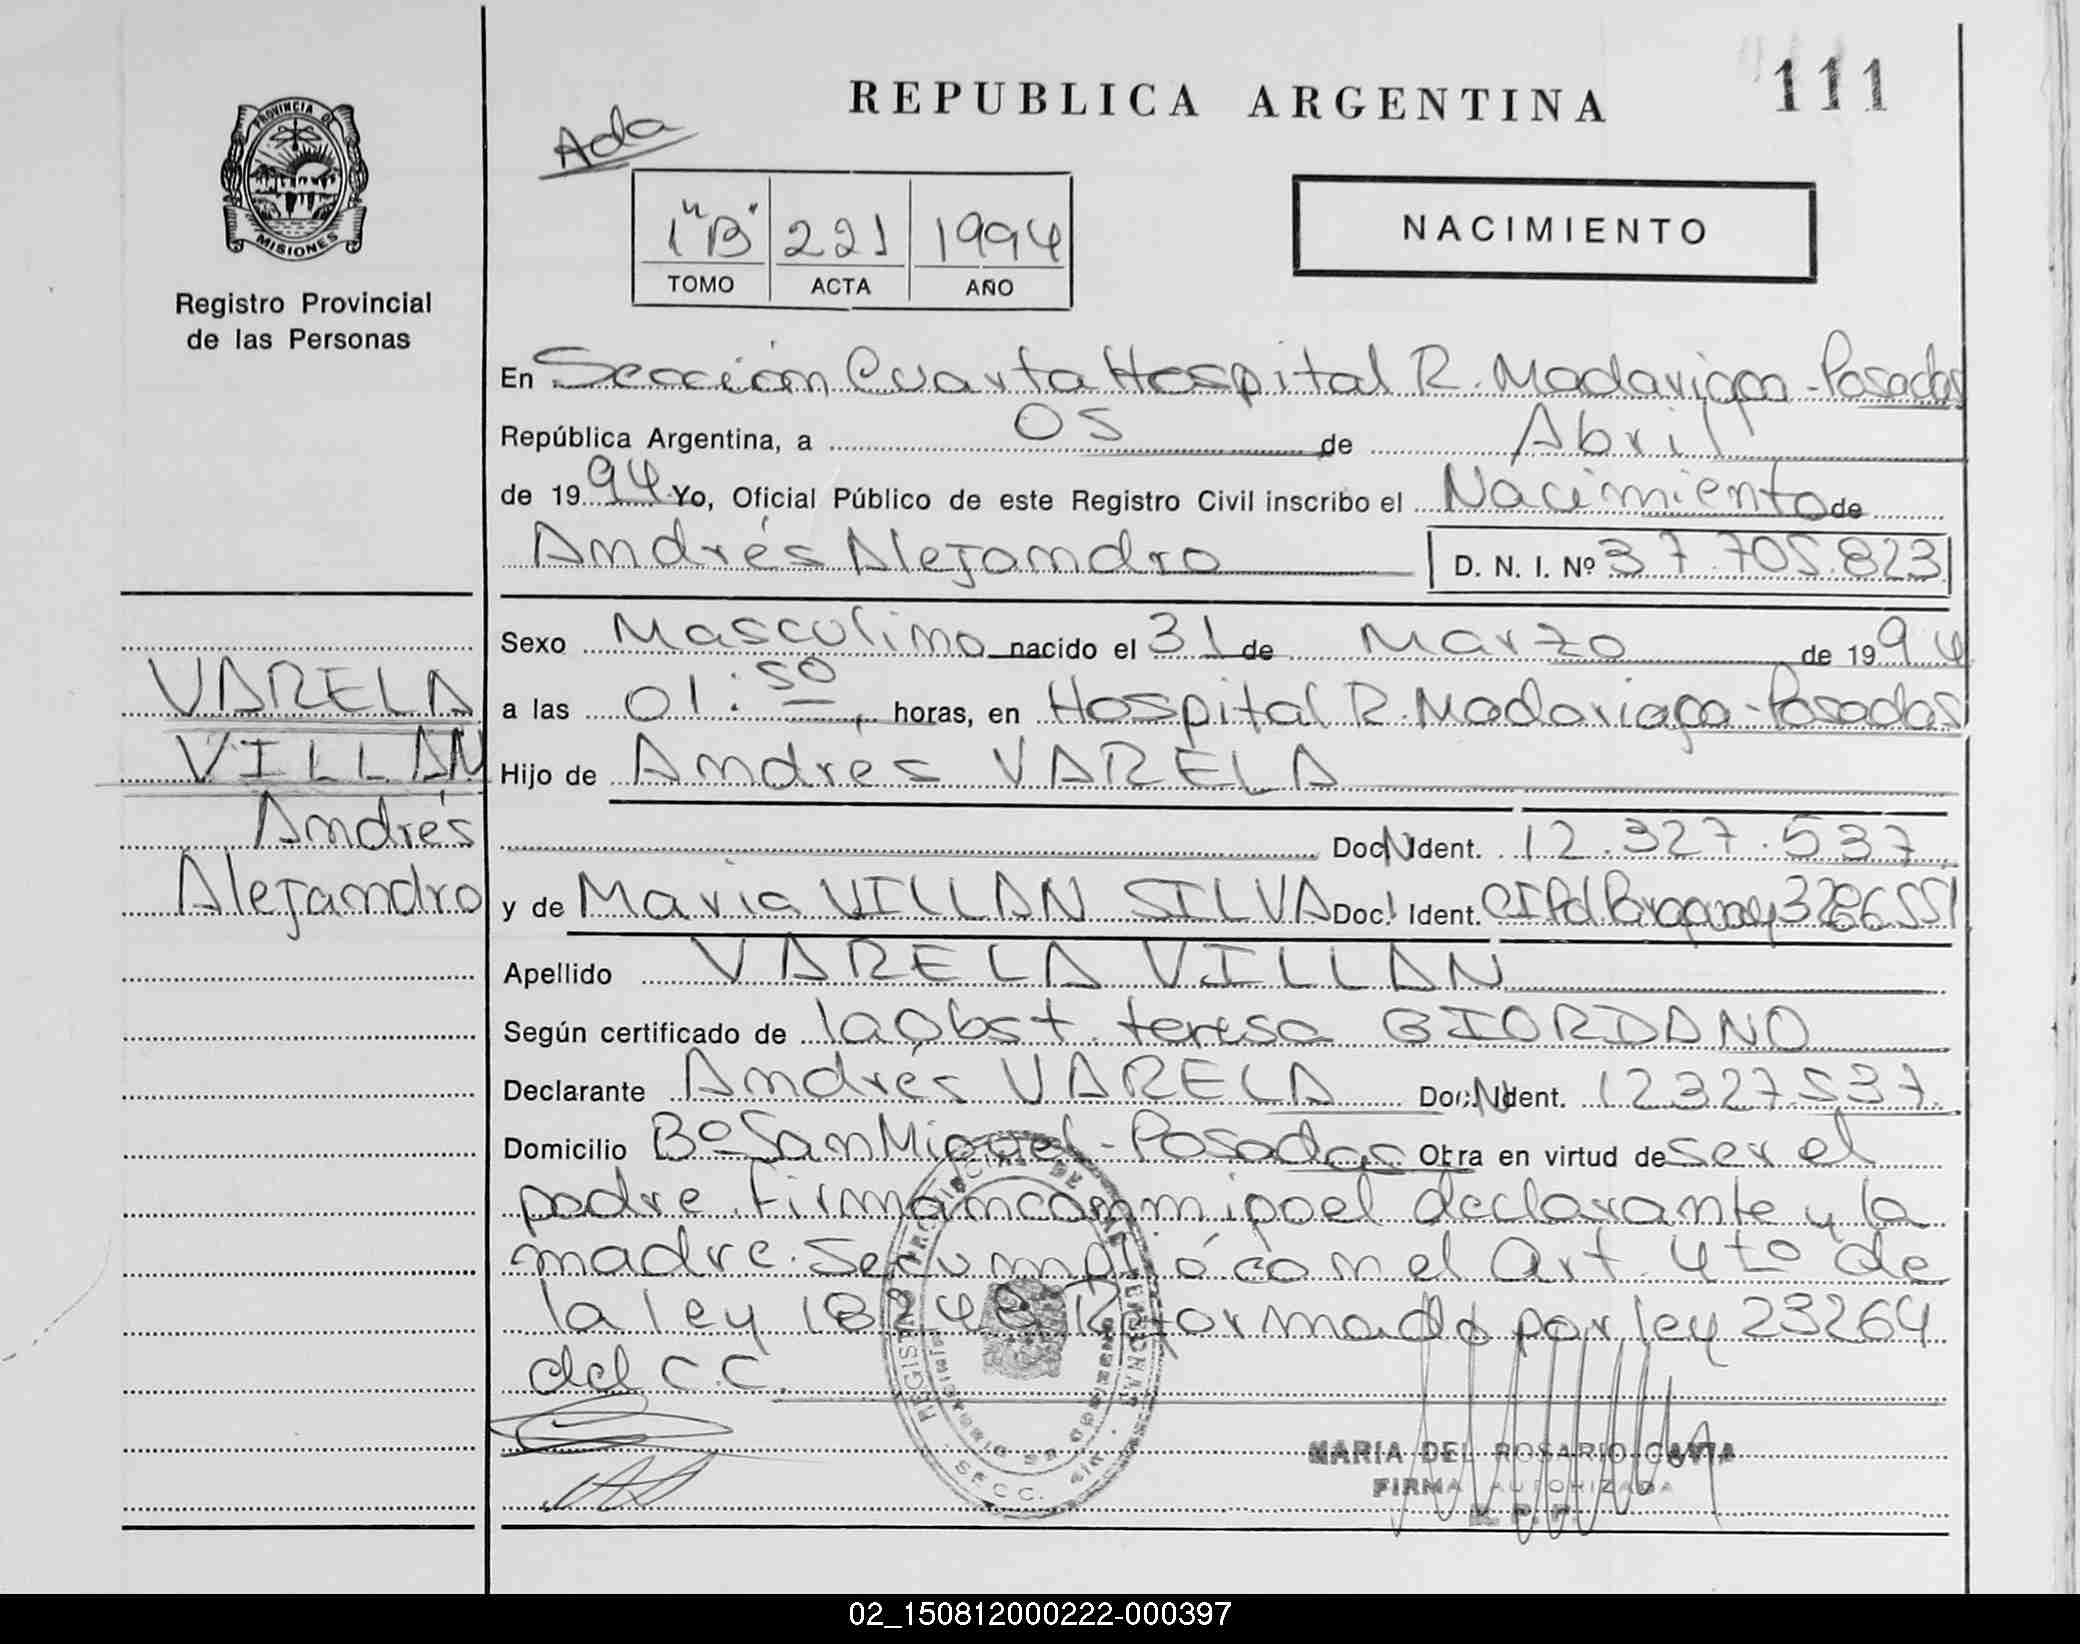 REPUBLICA ARGENTINA
111
PROVINCIA DE
MISIONES
Registro Provincial
de las Personas
Ada
1 "B" 221 1994
TOMO ACTA AÑO
NACIMIENTO
En Sección Cuarta Hospital R. Madariaga - Posadas
República Argentina, a 05 de Abril
de 1994 Yo, Oficial Público de este Registro Civil inscribo el Nacimiento de
Andrés Alejandro D. N. I. Nº 37.705.823
Sexo Masculino nacido el 31 de Marzo de 1994
a las 01:50, horas, en Hospital R. Madariaga - Posadas
Hijo de Andres VARELA
Doc N Ident. 12.327.537
y de Maria VILLAN SILVA Doc. Ident. CI Pol Paraguay
Apellido VARELA VILLAN
Según certificado de la Obst. teresa GIORDANO
Declarante Andrés VARELA Doc. N Ident. 12327.537.
Domicilio Bº San Miguel - Posadas Obra en virtud de ser el
padre. Firman conmigo el declarante y la
madre. Se cumplió con el Art. 4to de
la ley 18248 Reformado por ley 23264
del C.C.
VARELA
VILLAN
Andrés
Alejandro
REGISTRO PROVINCIAL DE LAS PERSONAS
SECC.
MARIA DEL ROSARIO
FIRMA AUTORIZADA
02_150812000222-000397